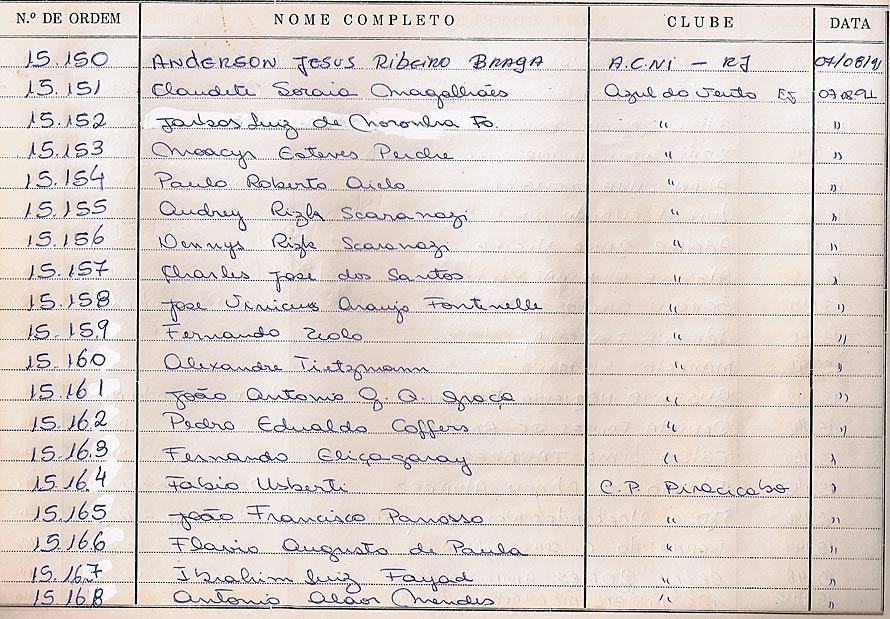 N.º DE ORDEM NOME COMPLETO CLUBE DATA
15.150 ANDERSON JESUS RIBEIRO BRAGA A.C.NI - RJ 07/08/91
15.151 Claudete Soraia Magalhães Azul do Vento 07.08.91
15.152 Luiz de Noronha Fo. " "
15.153 Moacyr Esteves Perdre " "
15.154 Paulo Roberto Aielo " "
15.155 Audrey Rizk Scaranazi " "
15.156 Dennys Rizk Scaranazi " "
15.157 Charles Jose dos Santos " "
15.158 Jose Vinicus Araujo Fontinelle " "
15.159 Fernando " "
15.160 Alexandre Tietzmann " "
15.161 João Antonio G. A. Graça " "
15.162 Pedro Edualdo Coffers " "
15.163 Fernando Eliçagaray " "
15.164 Fabio Usberti C.P. Piracicaba "
15.165 João Francisco Panosso " "
15.166 Flavio Augusto de Paula " "
15.167 Ibrahim Luiz Fayad " "
15.168 Antonio Alaor Mendes " "